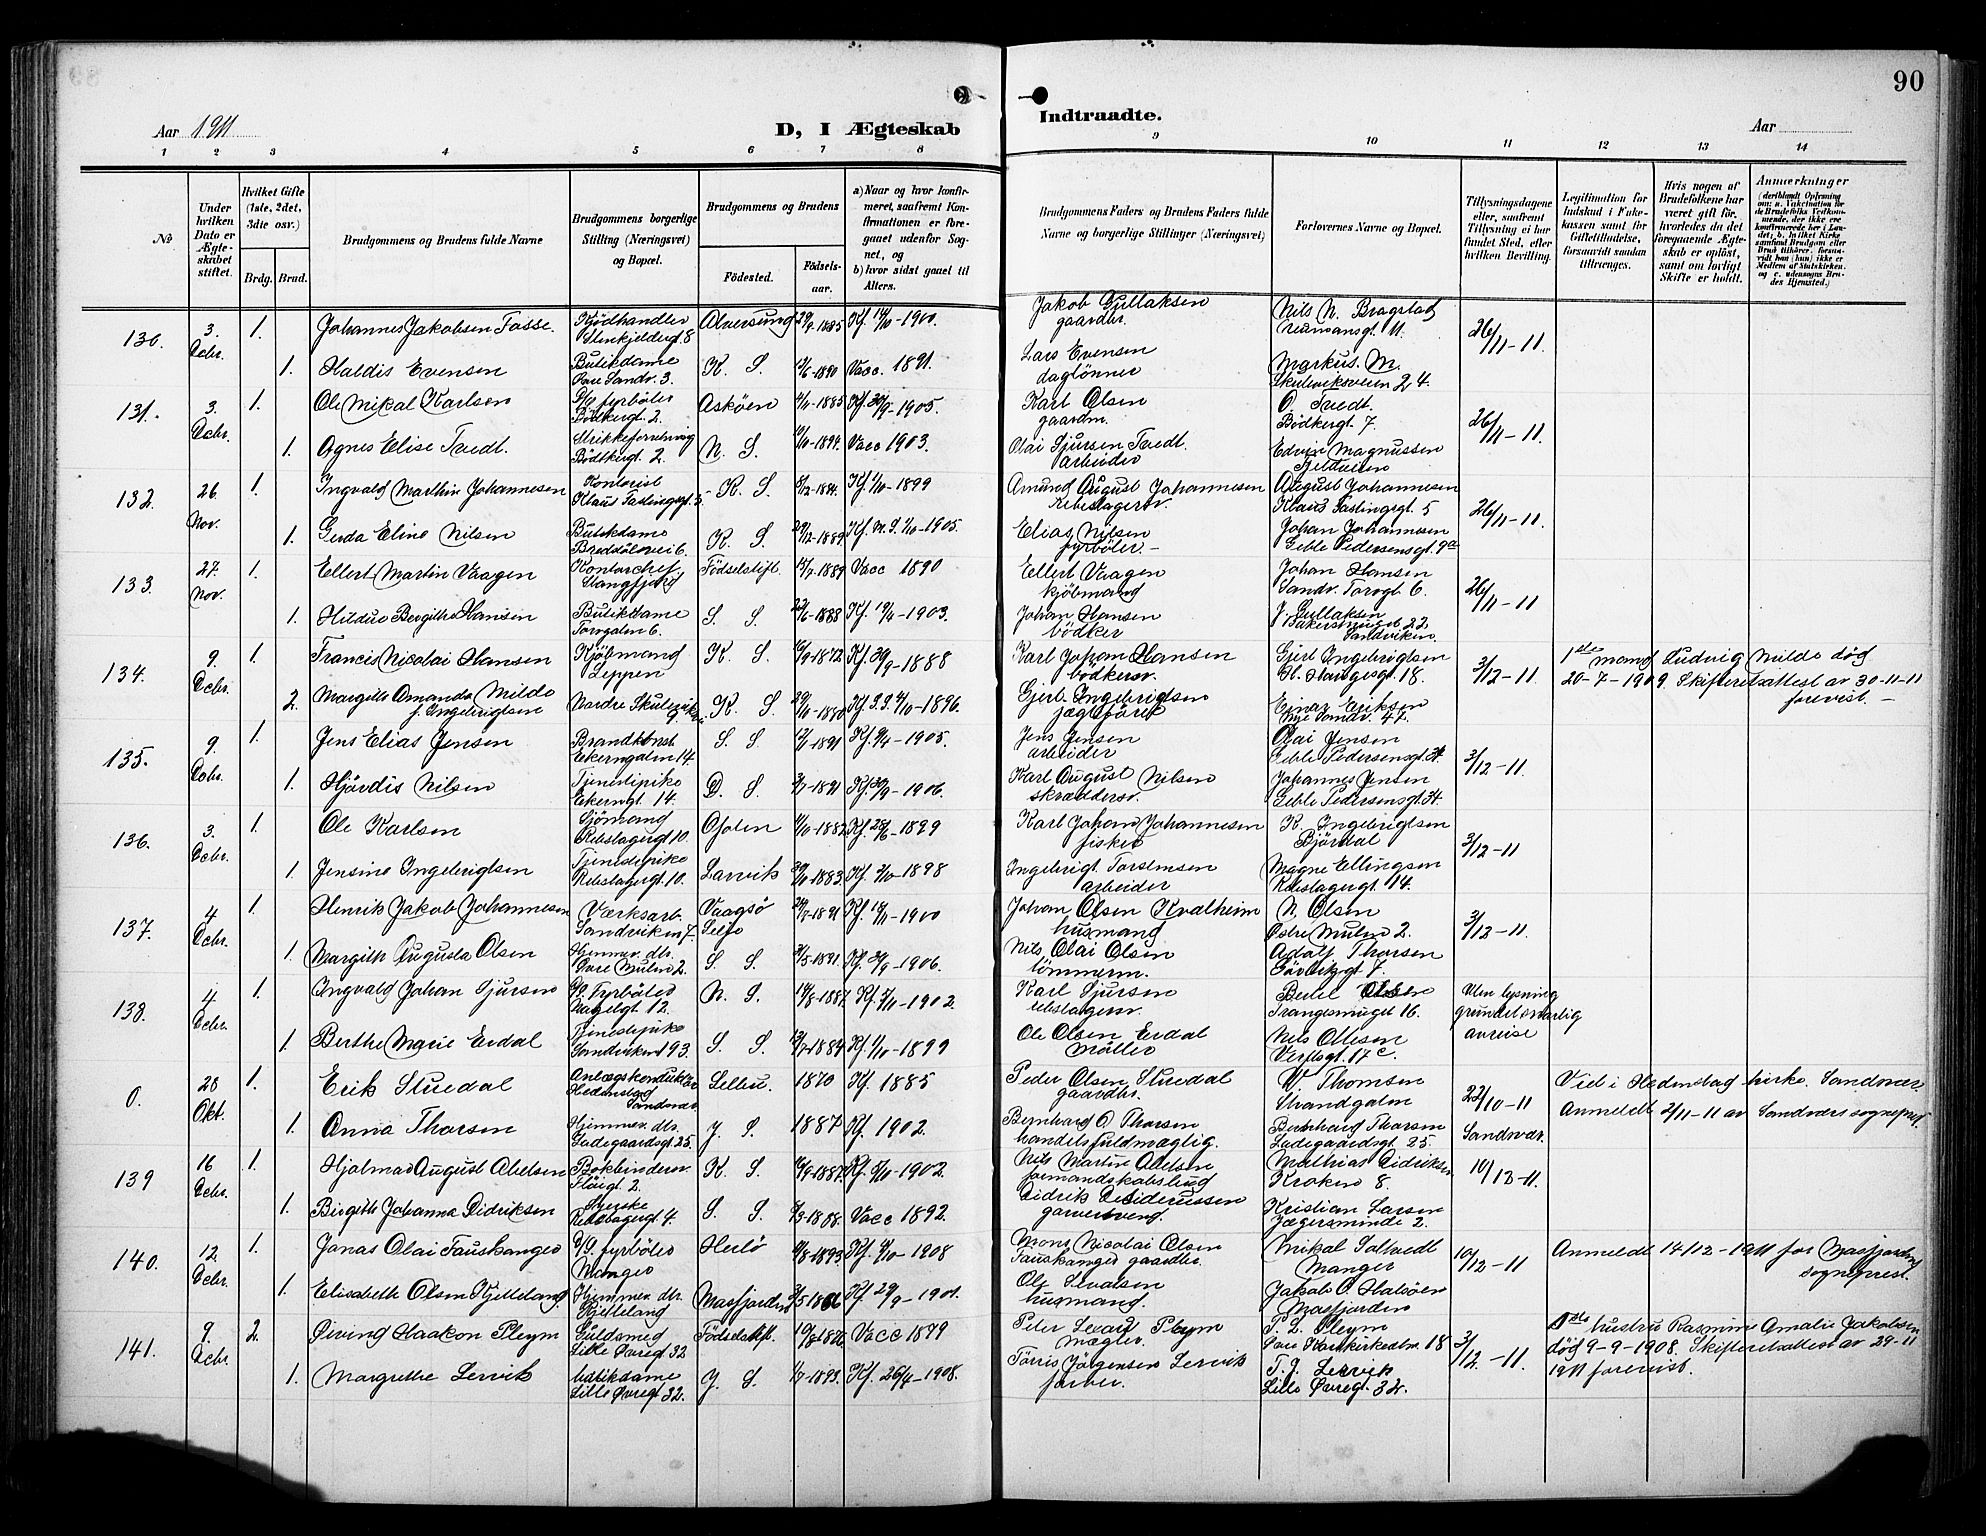 90
Aar 1911
D, I Ægteskab
Indtraadte.
Aar
1 2 3 4 5 6 7 8
9 10 11 12 13 14
No
Under hvilken Dato er Ægteskabet stiftet.
Hvilket Gifte (1ste, 2det, 3die osv.)
Brdg. Brud.
Brudgommens og Brudens fulde Navne
Brudgommens borgerlige Stilling (Næringsvei) og Bopæl.
Brudgommens og Brudens
Födested.
Födselsaar.
a) Naar og hvor konfirmeret, saafremt Konfirmationen er foregaaet udenfor Sognet, og
b) hvor sidst gaaet til Alters.
Brudgommens Faders og Brudens Faders fulde Navne og borgerlige Stillinger (Næringsvei)
Forlovernes Navne og Bopæl.
Tillysningsdagene eller, saafremt Tillysning ei har fundet Sted, efter hvilken Bevilling.
Legitimation for Indskud i Enkekassen samt for Giftetilladelse, forsaavidt saadan tiltrænges.
Hvis nogen af Brudefolkene har været gift før, hvorledes da det foregaaende Ægteskab er opløst, samt om lovligt Skifte er holdt.
Anmærkninger
130. 3. Decbr. 1. Johannes Jakobsen Fosse. Kjödhandler Steinkjeldergt 8 Alversund 29/9-1885 Kf. 14/10-1900. Jakob Gullaksen gaardbr. Nils N. Bragstad Nedmansgt. 11. 26/11-11.
1. Haldis Evensen Butikdame Övre Sandv. 3. K. S. 1890 Vacc. 1891. Lars Evensen daglönner Markus. M. Skuteviksveien 24.
131. 3. Decbr. 1. Ole Mikal Karlsen S/s fyrböter Bödkergt. 2. Asköen 1885 Kf. 30/9-1905. Karl Olsen gaardm. O. Tvedt. Bödkergt. 7. 26/11-11.
1. Agnes Elise Tvedt. Strikkeforretning Bödkergt. 2. N. S. 1894. Vacc 1903. Olai Sjursen Tvedt. arbeider Edvin Magnussen Fjeldveien
132. 26. Nov. 1. Ingvald Marthin Johannesen Kontorist Klaus Fastingsgt. 5 K. S. 8/12-1884. Kf. 1/10-1899 Amund August Johannesen rebslagersv. August Johannesen Klaus Fastingsgt. 5 26/11-11.
1. Gerda Eline Nilsen Butikdame K. S. 29/12-1889 Kf. M. S. 1/10-1905. Elias Nilsen fyrböter. Johan Johannesen Geble Pedersensgt. 9a
133. 27. Nov. 1. Ellert Martin Vaagen Kontorchef Stangfjord Födselstift. 1889 Vacc 1890 Ellert Vaagen kjöbmand Johan Hansen Sandv. Torvgt. 6. 26/11-11
1. Hildur Bergithe Hansen Butikdame Torvgaten 6. S. S. 1888 Kf. 19/4-1903. Johan Hansen bödker J. Gullaksen 22 Sandviken.
134. 9. Decbr. 1. Francis Nicolai Hansen Kjöbmand K. S. 1872 Kf. 30/9-1888 Karl Johan Hansen bödkersv. Gjert Ingebrigtsen Gl. Haugesgt. 18. 3/12-11. 1ste mand Ludvig Milde död 20-7-1909. Skifteretsattest av 30-11-11 forevist.
2. Margith Amanda Milde f. Ingebrigtsen Nordre Skutevik 9. K. S. 1880 Kf. S. S. 4/10-1896. Gjert Ingebrigtsen jægtförer Einar Eriksen Nye Sandv. 47.
135. 9. Decbr. 1. Jens Elias Jensen Brandkonst. Ekerngaten 14. S. S. 1891 Kf. 9/4-1905. Jens Jensen arbeider Olai Jensen Geble Pedersensgt. 34. 3/12-11.
1. Hjördis Nilsen Tjenestepike Ekerngt. 14. D. S. 1891 Kf. 30/9-1906. Karl August Nilsen skræddersv. Johannes Jensen Geble Pedersensgt. 34.
136. 3. Decbr. 1. Ole Karlsen Sjömand Rebslagergt. 10. Ofoten 1882 Kf. 1899 Karl Johan Johannesen fisker K. Ingebrigtsen Björdal 3/12-11
1. Jensine Ingebrigtsen Tjenestepike Rebslagergt. 10. Larvik 1883. Kf. 2/10-1898 Ingebrigt Torstensen arbeider Magne Ellingsen Rebslagergt. 14.
137. 4 Decbr. 1. Henrik Jakob Johannesen Værksarb. Sandviken 7. Vaagsö Selje 1881 Kf. 18/11-1900 Johan Olsen Kvalheim husmand N. Olsen Östre Muren 2. 3/12-11.
1. Margith Augusta Olsen Hjemmev. dtr. Övre Muren 2. S. S. 1891. Kf. 30/9-1906. Nils Olai Olsen tömmerm. Adolf Thorsen
138. 4 Decbr. 1. Ingvald Johan Sjursen S/s. Fyrböter Nagelgt. 12. N. S. 1887 Kf. 1902. Karl Sjursen rebslagersv. Bertel Olsen Trangesmuget 16. Uten lysning grundet snarlig avreise
1. Berthe Marie Erdal Tjenestepike Sandviken 93. S. S. 1884 Kf. 1/10-1899 Ole Olsen Erdal Möller Nils Ottesen Verftsgt. 17c.
0. 28 Okt. 1. Erik Stuedal Anlægskonduktör Hedenstad Sandsvær Selbu. 1870 Kf. 1885 Peder Olsen Stuedal gaardbr. W. Thomsen Strandgaten 22/10-11 Sandsvær. Viet i Hedenstad kirke. Sandsvær Anmeldt 2/11-11 av Sandsvers sogneprest.
1. Anna Thorsen Hjemmev. dtr. Ladegaardsgt. 25. J. S. 1887 Kf. 1902. Bernhard O. Thorsen handelsfuldmægtig. Bernhard Thorsen Ladegaardsgt. 25.
139 16 Decbr. 1. Hjalmar August Abelsen Bokbindersv. Fløigt. 2. K. S. 1887. Kf. 5/10-1902. Nils Martin Abelsen formandskabsbud Mathias Didriksen Kroken 8. 10/12-11.
1. Birgith Johanna Didriksen Syerske Rebslagergt. 4. S. S. 1888. Vacc 1892. Didrik Desideriussen garversvend. Kristian Larsen Jægersminde 2.
140. 12. Decbr. 1. Jonas Olai Tauskanger S/s. fyrböter Manger Herlö 1893 Kf. 4/10-1908 Mons Nicolai Olsen Tauskanger gaardbr. Mikal Soltvedt Manger 10/12-11 Anmeldt 14/12-1911 for Masfjorden sogneprest.
1. Elisabeth Olsen Kjetteland Hjemmev. dtr. Kjetteland Masfjorden Kf. 29/9-1901. Ole Sevalsen husmand. Jakob O. Halsöen Masfjorden
141. 9. Decbr. 2. Øivind Haakon Pleym Guldsmed Lille Øvregt. 32 Födselstift. 1876 Vacc 1879 Peter Leonard Pleym mægler P. L. Pleym Övre Korskirkealm. 18 3/12-11. 1ste hustru Rasmine Amalie Jakobsen död 9-9-1908. Skifteretsattest av 29-11 1911 forevist.
1. Margrethe Lervik butikdame Lille Øvregt. 32. J. S. 1893. Kf. 26/4-1908. Tönnes Jörgensen Lervik farver. T. J. Lervik Lille Øvregt. 32.